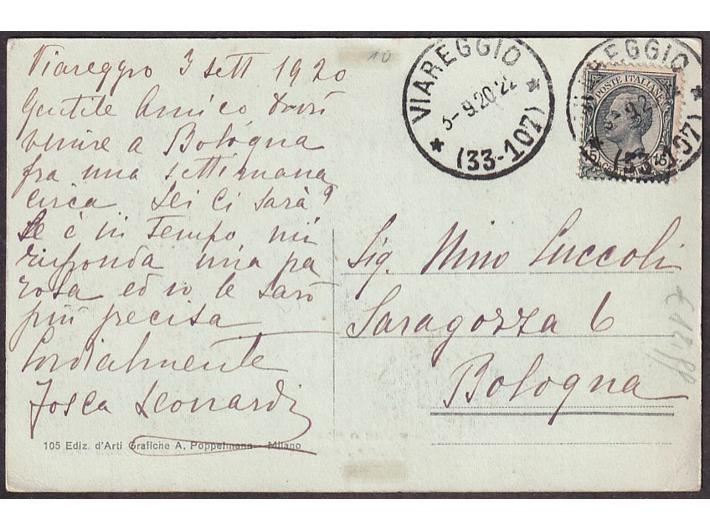 Viareggio 3 sett 1920
Gentile Amico dovrò
venire a Bologna
fra una settimana
circa Lei ci sarà?
Se è in tempo mi
risponda una pa
rola ed io le sarò
più precisa
Cordialmente
Tosca Leonardi
105 Ediz. d'Arti Grafiche A. Poppelmann - Milano
10
VIAREGGIO
3-9.20.22
* (33-107) *
VIAREGGIO
POSTE ITALIANE
3-9.2
15 15
* (33-107) *
Sig. Nino Luccoli
Saragozza 6
Bologna